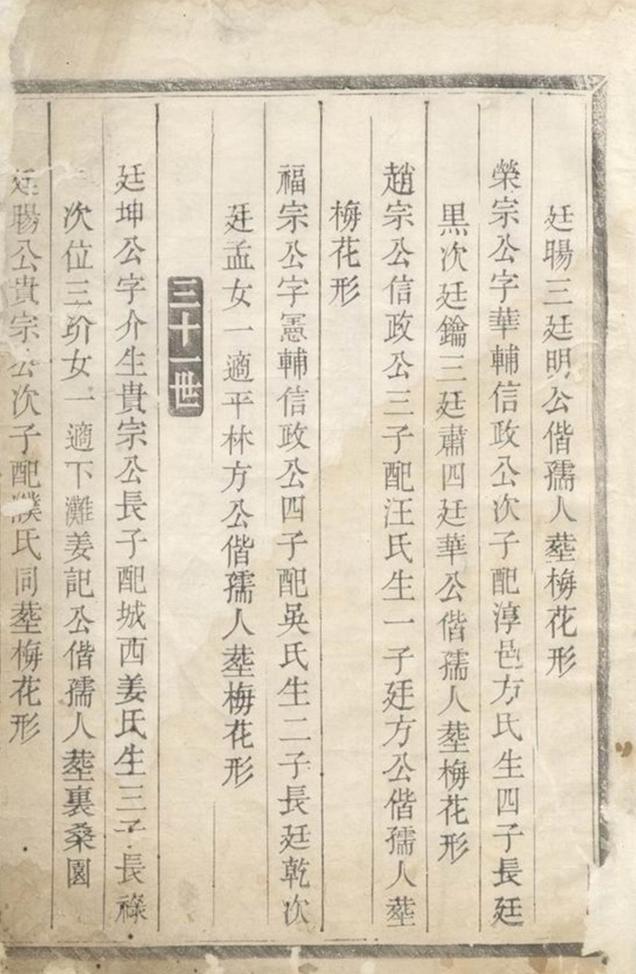 廷暘三廷明公偕孺人塟梅花形
榮宗公字華輔信政公次子配淳邑方氏生四子長廷
黒次廷鑰三廷蕭四廷華公偕孺人塟梅花形
趙宗公信政公三子配汪氏生一子廷方公偕孺人塟
梅花形
福宗公字憲輔信政公四子配吳氏生二子長廷乾次
廷孟女一適平林方公偕孺人塟梅花形
三十一世
廷坤公字介生貴宗公長子配城西姜氏生三子長祿
次位三玠女一適下灘姜記公偕孺人塟裏桑園
廷暘公貴宗公次子配濮氏同塟梅花形